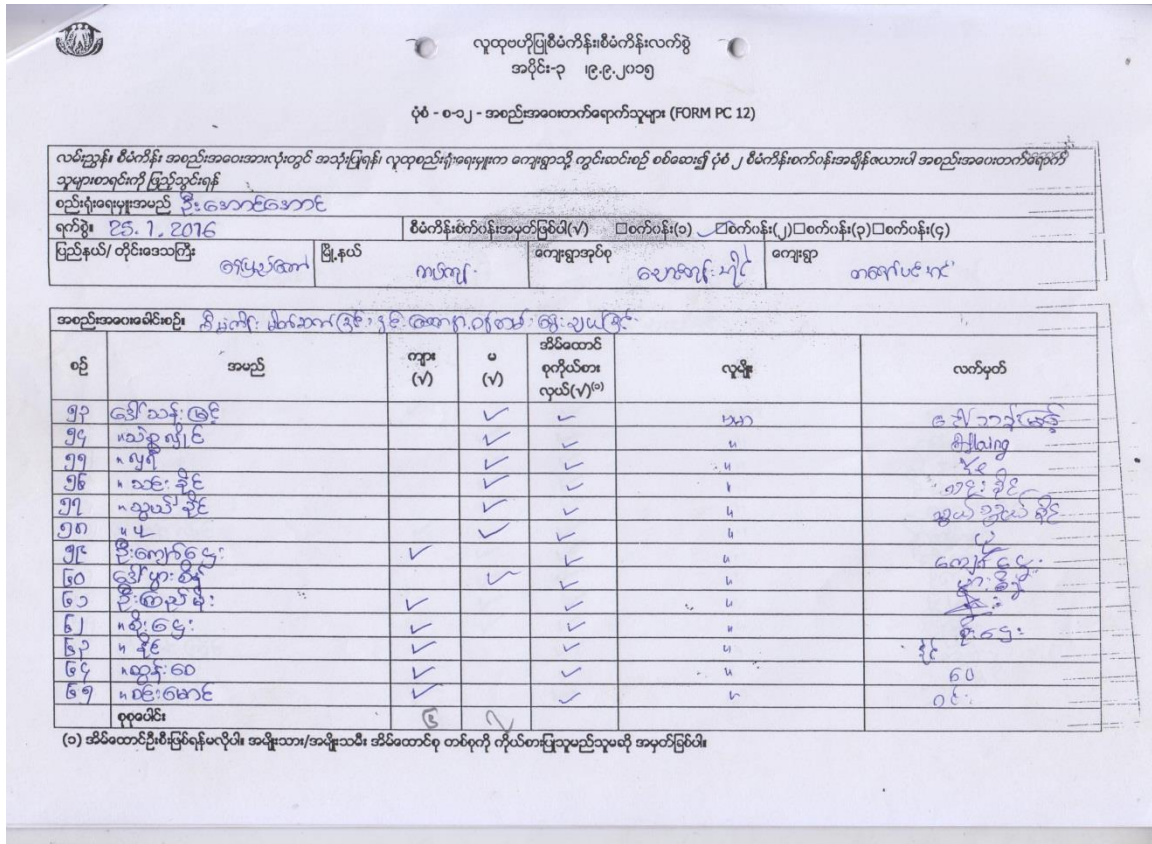 လူထုဗဟိုပြုစီမံကိန်း၊စီမံကိန်းလက်စွဲ
အပိုင်း-၃ ၊၉.၉.၂၀၁၅
ပုံစံ - စ-၁၂ - အစည်းအဝေးတက်ရောက်သူများ (FORM PC 12)
လမ်းညွှန်။ စီမံကိန်း အစည်းအဝေးအားလုံးတွင် အသုံးပြုရန်၊ လူထုစည်းရုံးရေးမှူးက ကျေးရွာသို့ ကွင်းဆင်းစဉ် စစ်ဆေး၍ ပုံစံ ၂ စီမံကိန်းစက်ဝန်းအချိန်ဇယားပါ အစည်းအဝေးတက်ရောက်
သူများစာရင်းကို ဖြည့်သွင်းရန်
စည်းရုံးရေးမှူးအမည် ဦးအောင်အောင်
ရက်စွဲ။ 25.1.2016 စီမံကိန်းစက်ဝန်းအမှတ်ဖြစ်ပါ(√) □စက်ဝန်း(၁) □စက်ဝန်း(၂)□စက်ဝန်း(၃)□စက်ဝန်း(၄)
ပြည်နယ်/ တိုင်းဒေသကြီး နေပြည်တော် မြို့နယ် ကျေးရွာအုပ်စု ကျေးရွာ
အစည်းအဝေးခေါင်းစဉ်။
စဉ် အမည် ကျား (√) မ (√) အိမ်ထောင်စုကိုယ်စားလှယ်(√)⁽¹⁾ လူမျိုး လက်မှတ်
၅၃ ဒေါ်သန်းမြင့် ✓ ✓ ဗမာ ဒေါ်သန်းမြင့်
၅၄ ✓ ✓ "
၅၅ " လှရီ ✓ ✓ "
၅၆ " သင်းနိုင် ✓ ✓ " သင်းနိုင်
၅၇ ✓ ✓ "
၅၈ " ပု ✓ ✓ " ပု
၅၉ ဦးကျော်ဌေး ✓ ✓ " ကျော်ဌေး
၆၀ ဒေါ်ဖွားစိန် ✓ ✓ " ဖွားစိန်
၆၁ ဦးကြည်မိုး ✓ ✓ "
၆၂ " စိုးဌေး ✓ ✓ " စိုးဌေး
၆၃ " နိုင် ✓ ✓ " နိုင်
၆၄ " ထွန်းဝေ ✓ ✓ " ဝေ
၆၅ " ဝင်းမောင် ✓ ✓ " ဝင်း
စုစုပေါင်း ၆ ၇
(၁) အိမ်ထောင်ဦးစီးဖြစ်ရန်မလိုပါ။ အမျိုးသား/အမျိုးသမီး အိမ်ထောင်စု တစ်စုကို ကိုယ်စားပြုသူမည်သူမဆို အမှတ်ခြစ်ပါ။